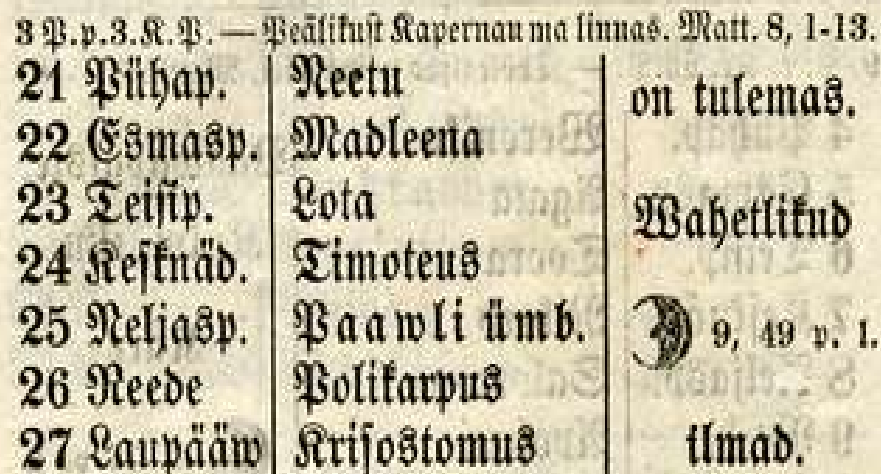 3 P.p.3.K.P. — Peälikust Kapernauma linnas. Matt. 8, 1-13.
21 Pühap. Neetu on tulemas.
22 Esmasp. Madleena
23 Teisip. Lota Wahetlikud
24 Keſknäd. Timoteus
25 Neljasp. Paawli ümb. 9, 49 p. l.
26 Reede Polikarpus
27 Laupääw Kriſostomus ilmad.